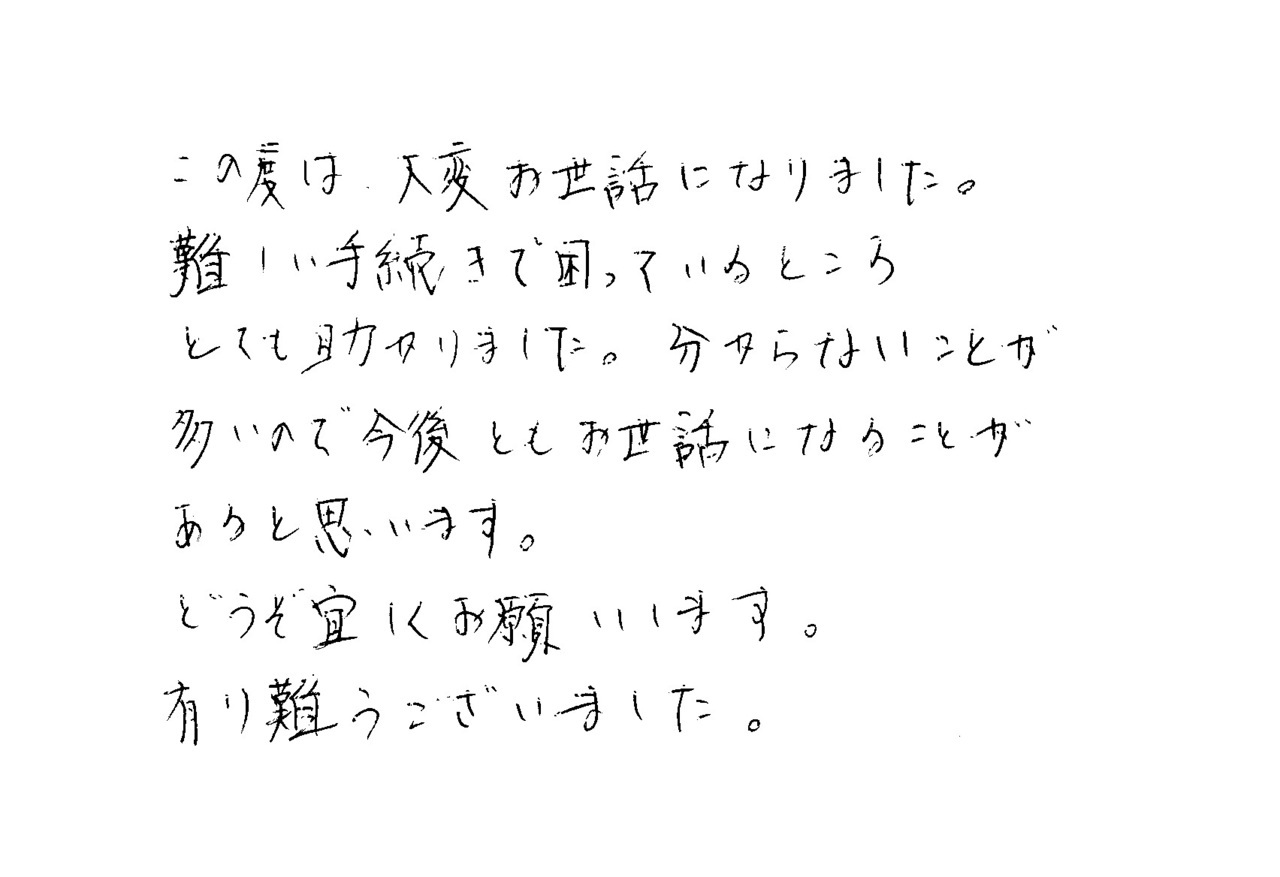 この度は、大変お世話になりました。
難しい手続きで困っているところ
とても助かりました。分からないことが
多いので今後ともお世話になることが
あると思います。
どうぞ宜しくお願いします。
有り難うございました。